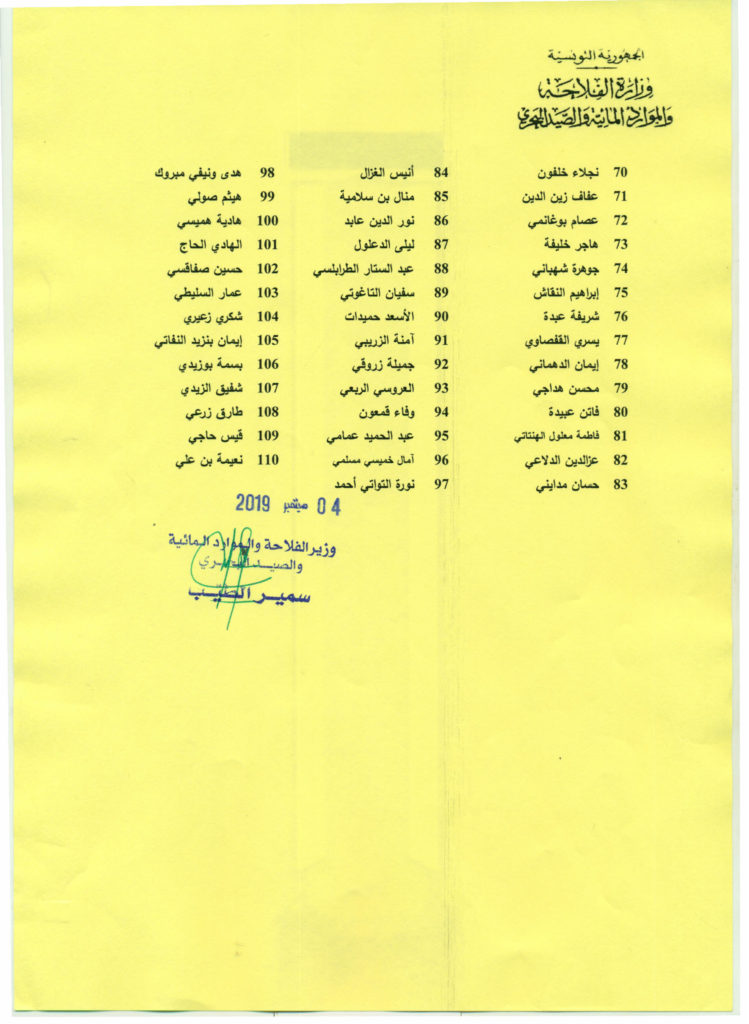 الجمهورية التونسية
وزارة الفلاحة
والموارد المائية والصيد البحري
70 نجلاء خلفون
71 عفاف زين الدين
72 عصام بوغانمي
73 هاجر خليفة
74 جوهرة شهباني
75 إبراهيم النقاش
76 شريفة عبدة
77 يسري القفصاوي
78 إيمان الدهماني
79 محسن هداجي
80 فاتن عبيدة
81 فاطمة معلول الهنتاتي
82 عزالدين الدلاعي
83 حسان مدايني
84 أنيس الغزال
85 منال بن سلامية
86 نور الدين عابد
87 ليلى الدعلول
88 عبد الستار الطرابلسي
89 سفيان التاغوتي
90 الأسعد حميدات
91 آمنة الزريبي
92 جميلة زروقي
93 العروسي الربعي
94 وفاء قمعون
95 عبد الحميد عمامي
96 آمال خميسي مسلمي
97 نورة التواتي أحمد
98 هدى ونيفي مبروك
99 هيثم صولي
100 هادية هميسي
101 الهادي الحاج
102 حسين صفاقسي
103 عمار السليطي
104 شكري زعيري
105 إيمان بنزيد النفاتي
106 بسمة بوزيدي
107 شفيق الزيدي
108 طارق زرعي
109 قيس حاجي
110 نعيمة بن علي
04 سبتمبر 2019
وزير الفلاحة والموارد المائية
والصيد البحري
سمير الطيب